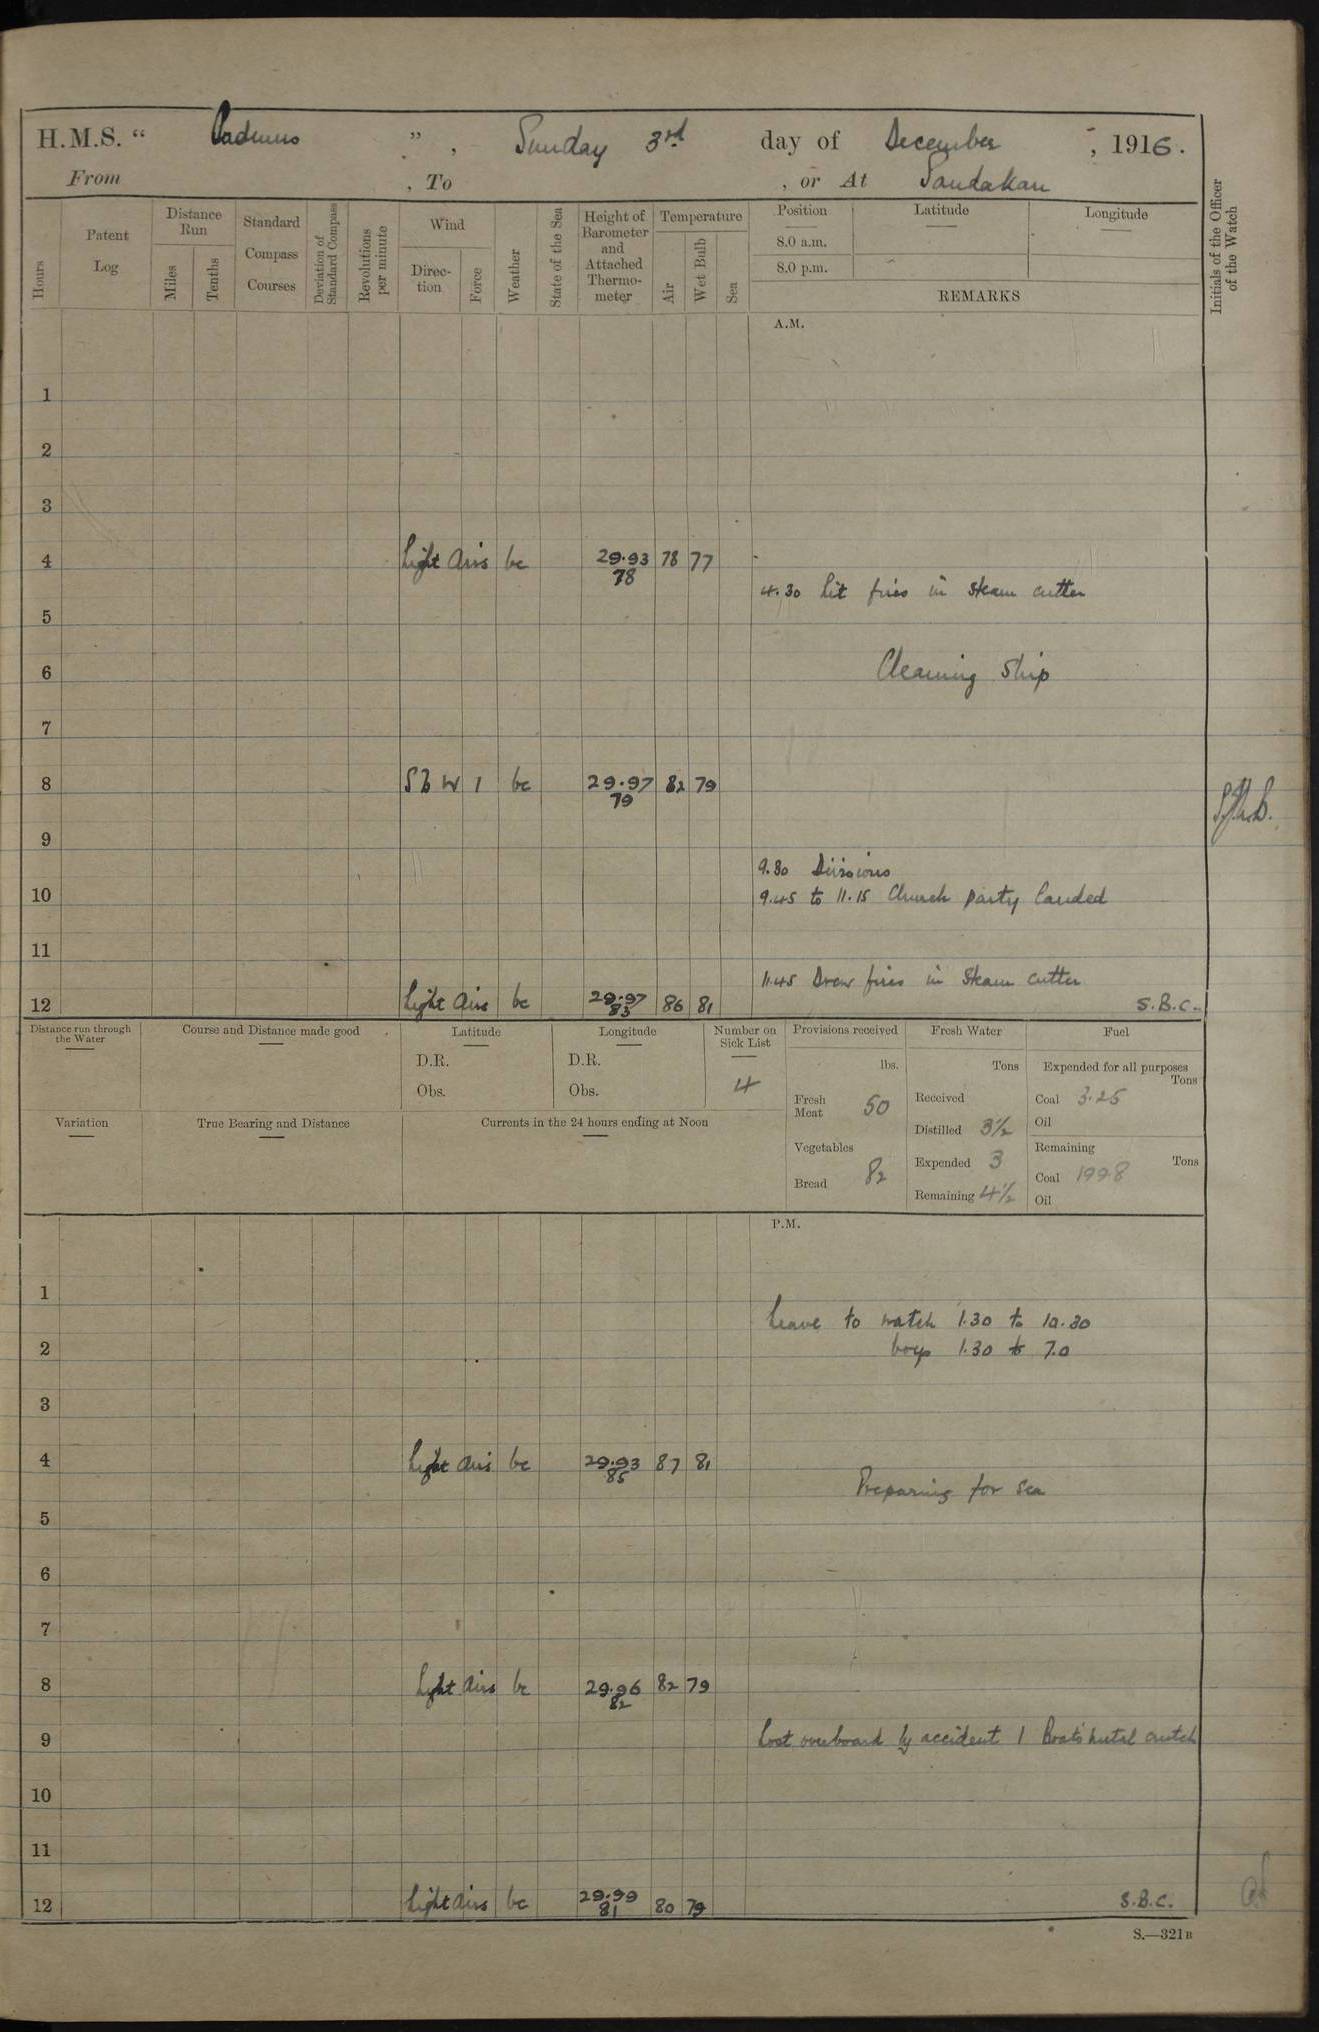 H.M.S. " Cadmus ", Sunday 3rd day of December, 1916.
From , To , or At Sandakan
Hours
Patent Log
Distance Run
Miles
Tenths
Standard Compass Courses
Deviation of Standard Compass
Revolutions per minute
Wind
Direc-tion
Force
Weather
State of the Sea
Height of Barometer and Attached Thermo-meter
Temperature
Air
Wet Bulb
Sea
Position
Latitude
Longitude
8.0 a.m.
8.0 p.m.
REMARKS
Initials of the Officer of the Watch
A.M.
1
2
3
4 Light Airs bc 29.93 78 77
78
4.30 Lit fires in Steam cutter
5
Cleaning Ship
6
7
8 S b W 1 bc 29.97 82 79
79
9
9.30 Divisions
10 9.45 to 11.15 Church party landed
11
11.45 Drew fires in Steam cutter
12 Light airs bc 29.97 86 81 S.B.C.
83
Distance run through the Water
Course and Distance made good
Latitude
D.R.
Obs.
Longitude
D.R.
Obs.
Number on Sick List
4
Provisions received
lbs.
Fresh Meat 50
Vegetables
82
Bread
Fresh Water
Tons
Received
Distilled 3½
Expended 3
Remaining 4½
Fuel
Expended for all purposes
Tons
Coal 3.25
Oil
Remaining
Tons
Coal 199.8
Oil
Variation
True Bearing and Distance
Currents in the 24 hours ending at Noon
P.M.
1
Leave to watch 1.30 to 10.30
2 boys 1.30 to 7.0
3
4 Light airs bc 29.93 87 81
85
Preparing for sea
5
6
7
8 Light airs bc 29.96 82 79
82
9 Lost overboard by accident 1 Boats metal crutch
10
11
12 Light airs bc 29.99 80 79 S.B.C.
81
S.—321B